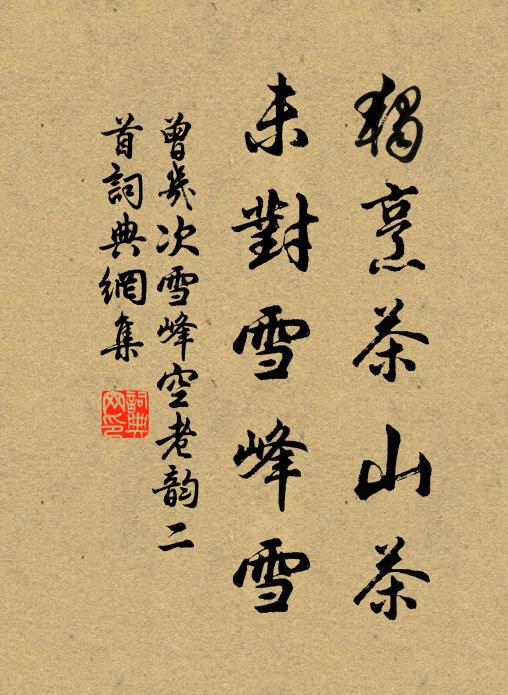 獨烹茶山茶
未對雪峰雪
曾幾次雪峰空老韵二
首詞典網集
詞典
网印